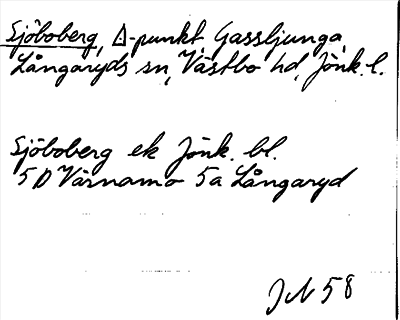 Sjöboberg, △-punkt, Gassljunga,
Långaryds sn, Västbo hd, Jönk. l.
Sjöboberg ek Jönk. bl.
5D Värnamo 5a Långaryd
JN 58